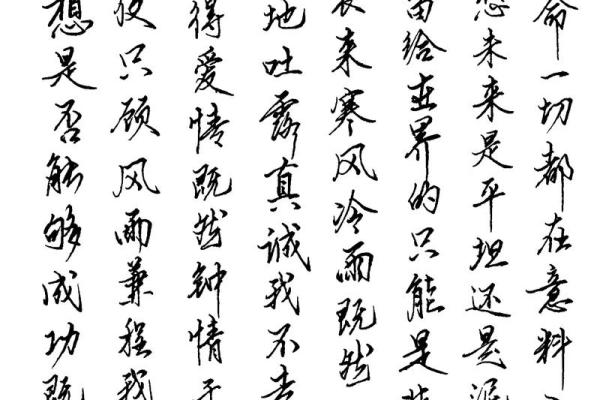 命一切都在意料
想未来是平坦还是泥
留给世界的只能是背
袭来寒风冷雨既然
地吐露真诚我不去
得愛情既然钟情于
便只顾风雨兼程我
想是否能够成功既